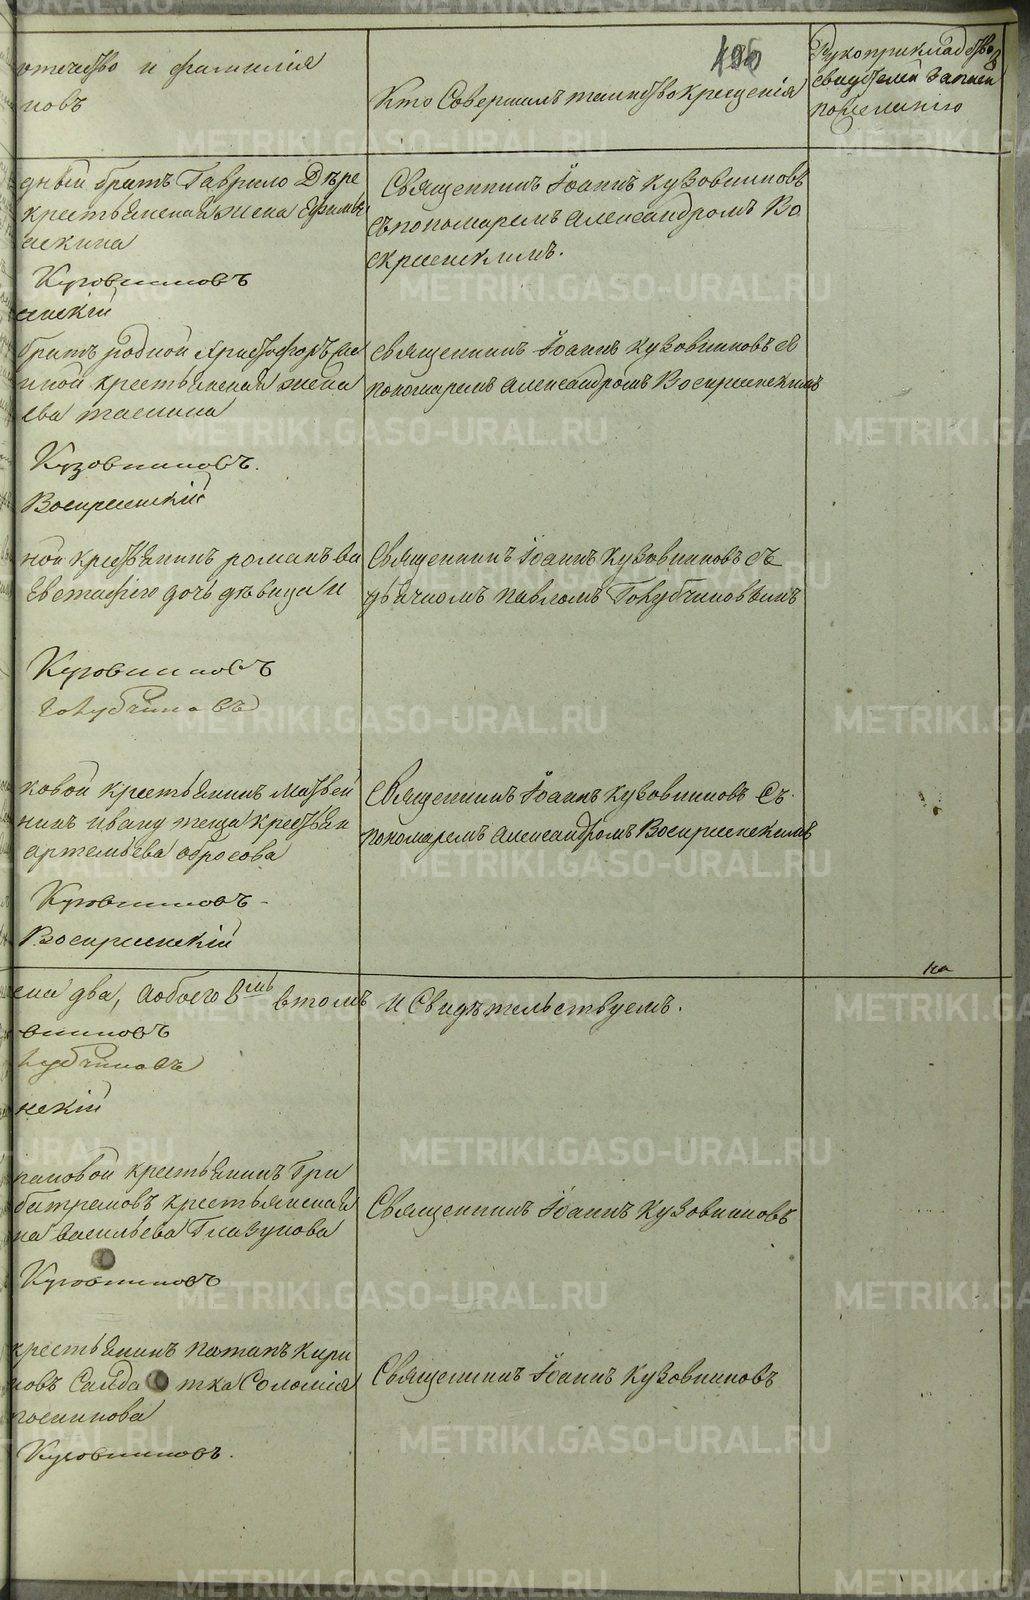 отчество и фамилія
новъ
Кто Совершалъ таинство Крещенія
Рукоприкладство
свидетелей записи
по желанію
дный братъ Гаврило
крестьянская жена
Священникъ Іоаннъ Кузовниковъ
съ пономаремъ Александромъ Во
скресенскимъ.
Кузовниковъ
енскій
братъ родной Христофоръ
ной крестьянская жена
ева
Священникъ Іоаннъ Кузовниковъ съ
пономаремъ Александромъ Воскресенскимъ
Кузовниковъ.
Воскресенскій
ной крестьянинъ романъ
Евстафіева дочь дѣвица
Священникъ Іоаннъ Кузовниковъ съ
дьячкомъ павломъ Голубчиковымъ
Кузовниковъ
Голубчиковъ
ковой крестьянинъ Матвей
нинъ Ивану теща крестьян
артемьева абросова
Священникъ Іоаннъ Кузовниковъ Съ
пономаремъ Александромъ Воскресенскимъ
Кузовниковъ
Воскресенскій
два, Аобоего 8мъ втомъ и Свидѣтельствуемъ.
вниковъ
лубчиковъ
нскій
пановой крестьянинъ Гри
крестьянская
на васильева Глазунова
Священникъ Іоаннъ Кузовниковъ
Кузовниковъ
крестьянинъ потапъ Кири
ловъ Солда тка Соломія
Священникъ Іоаннъ Кузовниковъ
Кузовниковъ.
METRIKI.GASO-URAL.RU